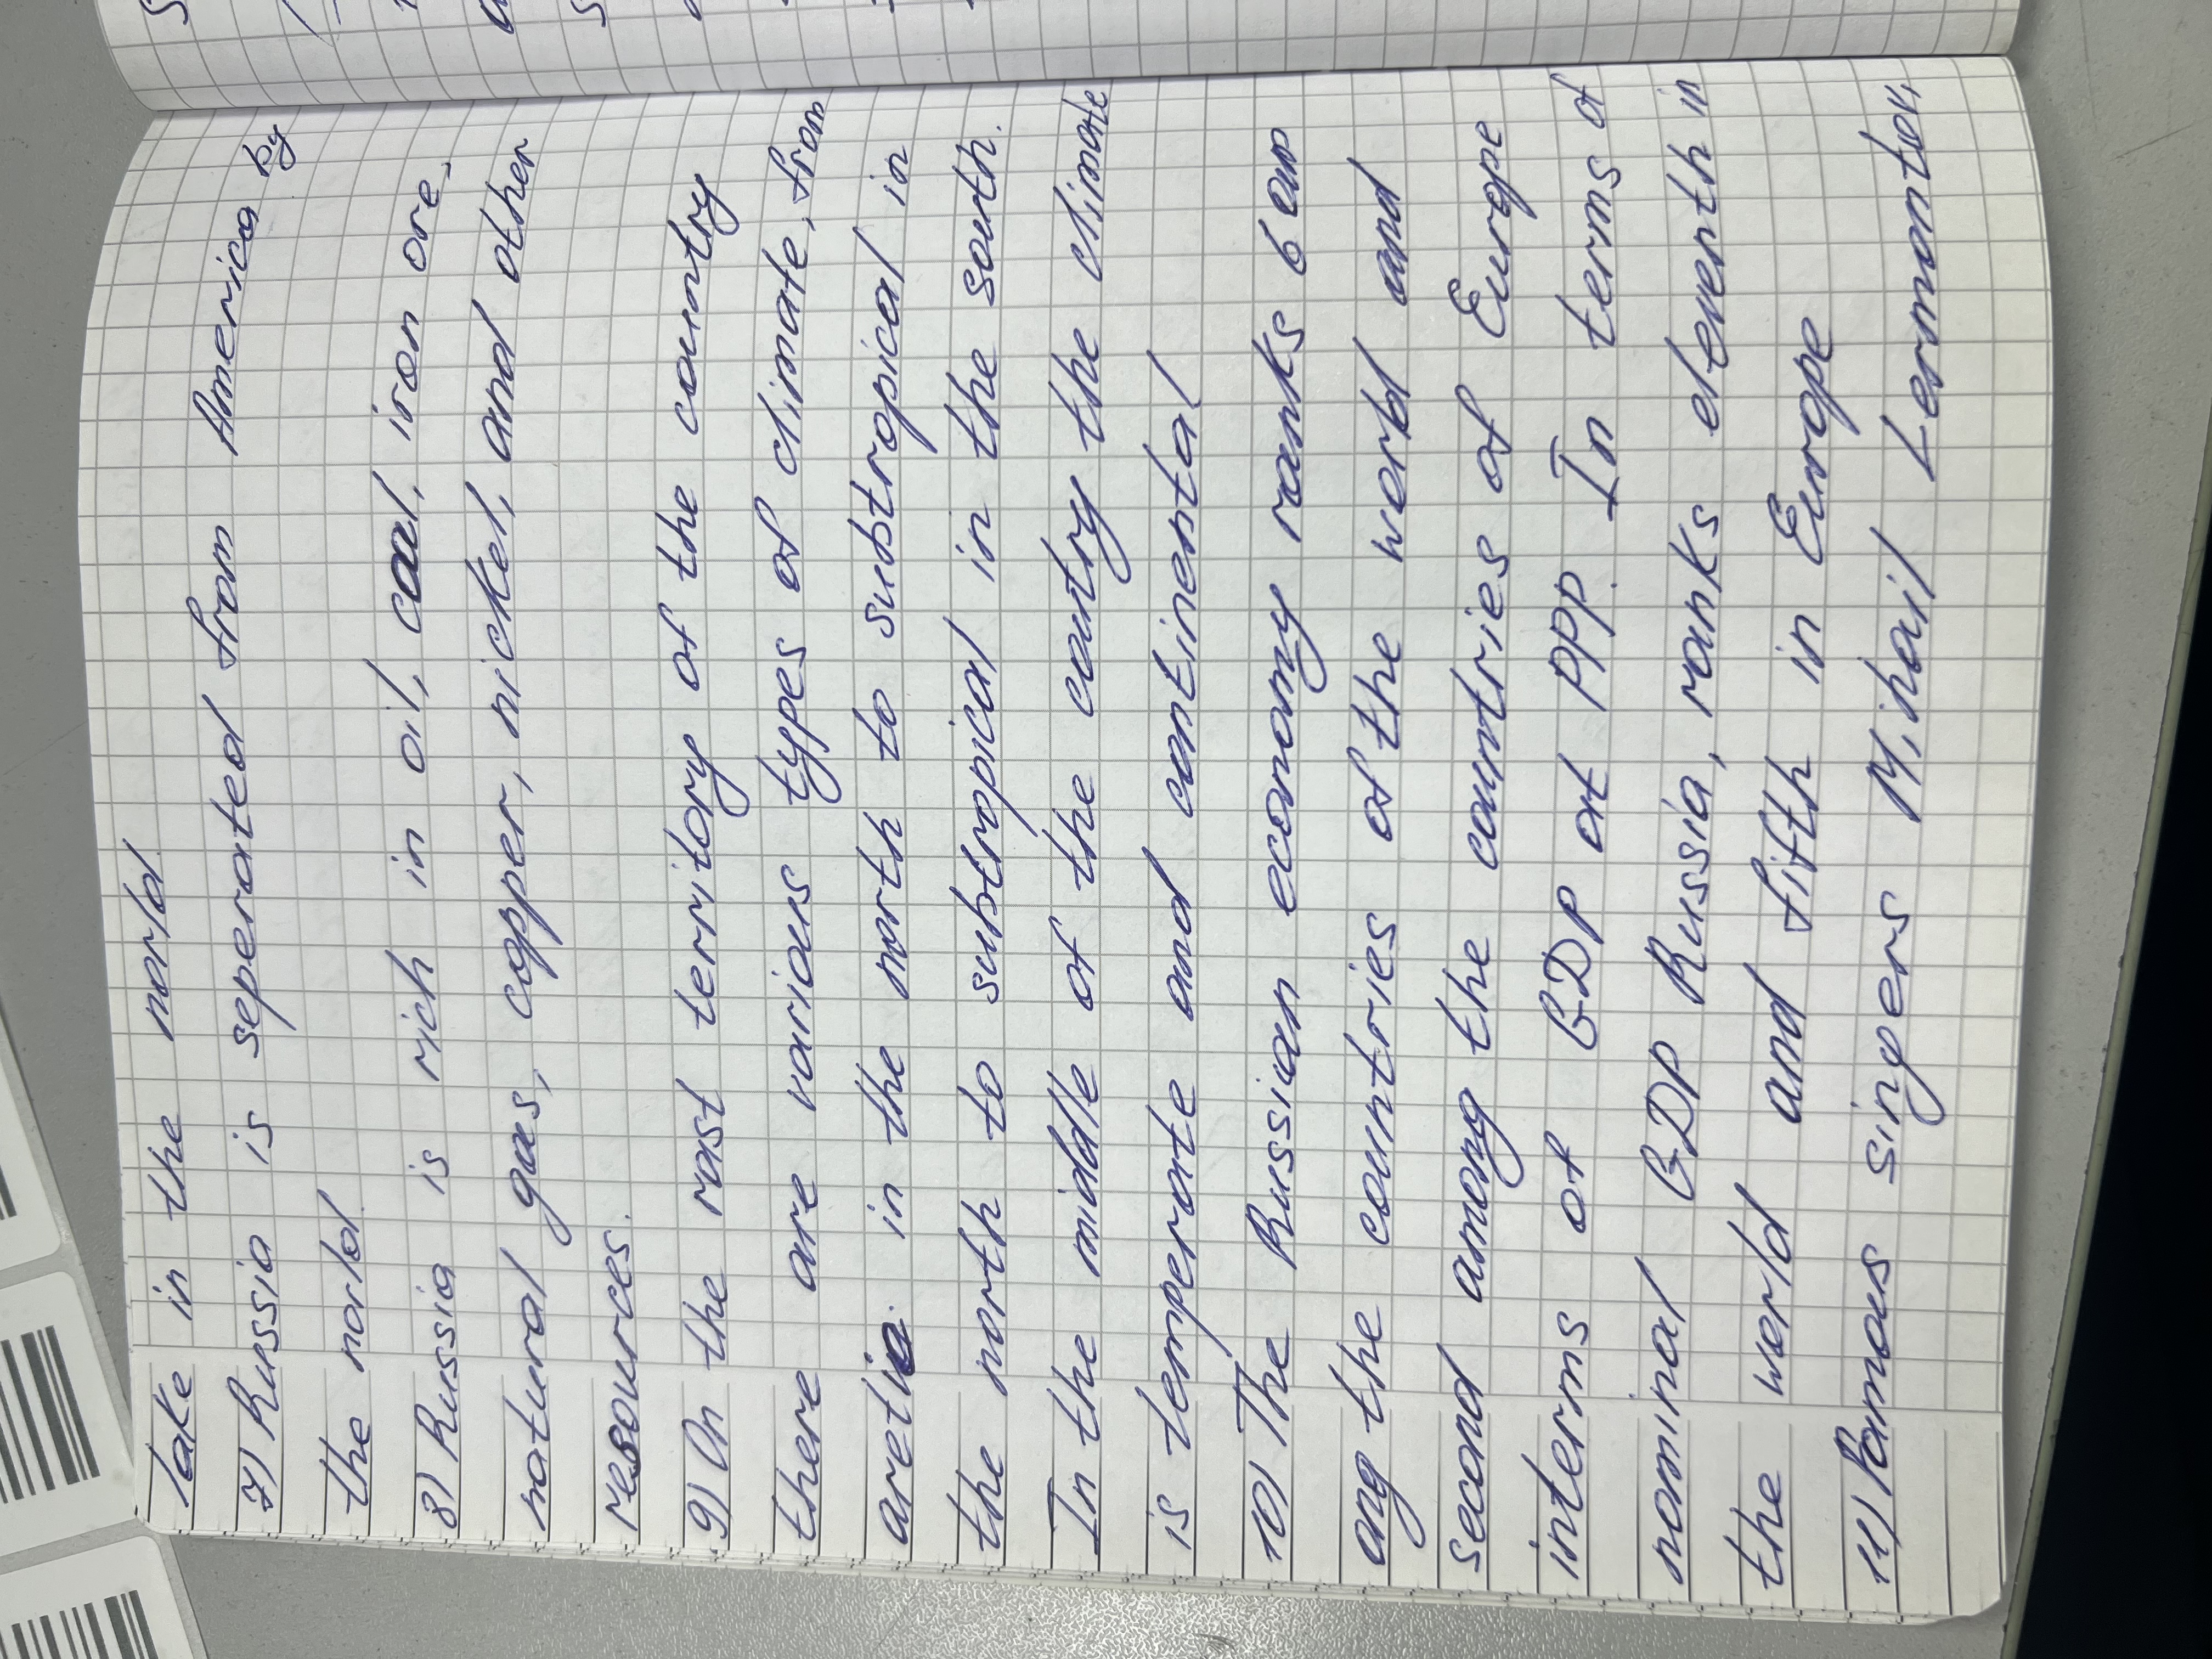 lake in the world.
7) Russia is seperated from America by
the world.
8) Russia is rich in oil, coal, iron ore,
natural gas, copper, nickel, and other
resources.
9) On the vast territory of the country
there are various types of climate, from
arctic in the north to subtropical in
the north to subtropical in the south.
In the middle of the country the climate
is temperate and continental
10) The Russian economy ranks 6
ong the countries of the world and
second among the countries of Europe
interms of GDP at PPP. In terms of
nominal GDP Russia, ranks eleventh in
the world and fifth in Europe
11) Famous singers Mihail Lermontov,